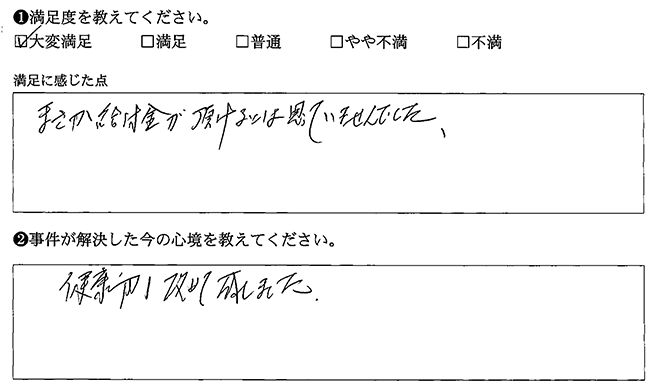 ❶満足度を教えてください。
☑大変満足 □満足 □普通 □やや不満 □不満
満足に感じた点
まさか給付金が頂けるとは思っていませんでした、
❷事件が解決した今の心境を教えてください。
健康 改めて感しました.